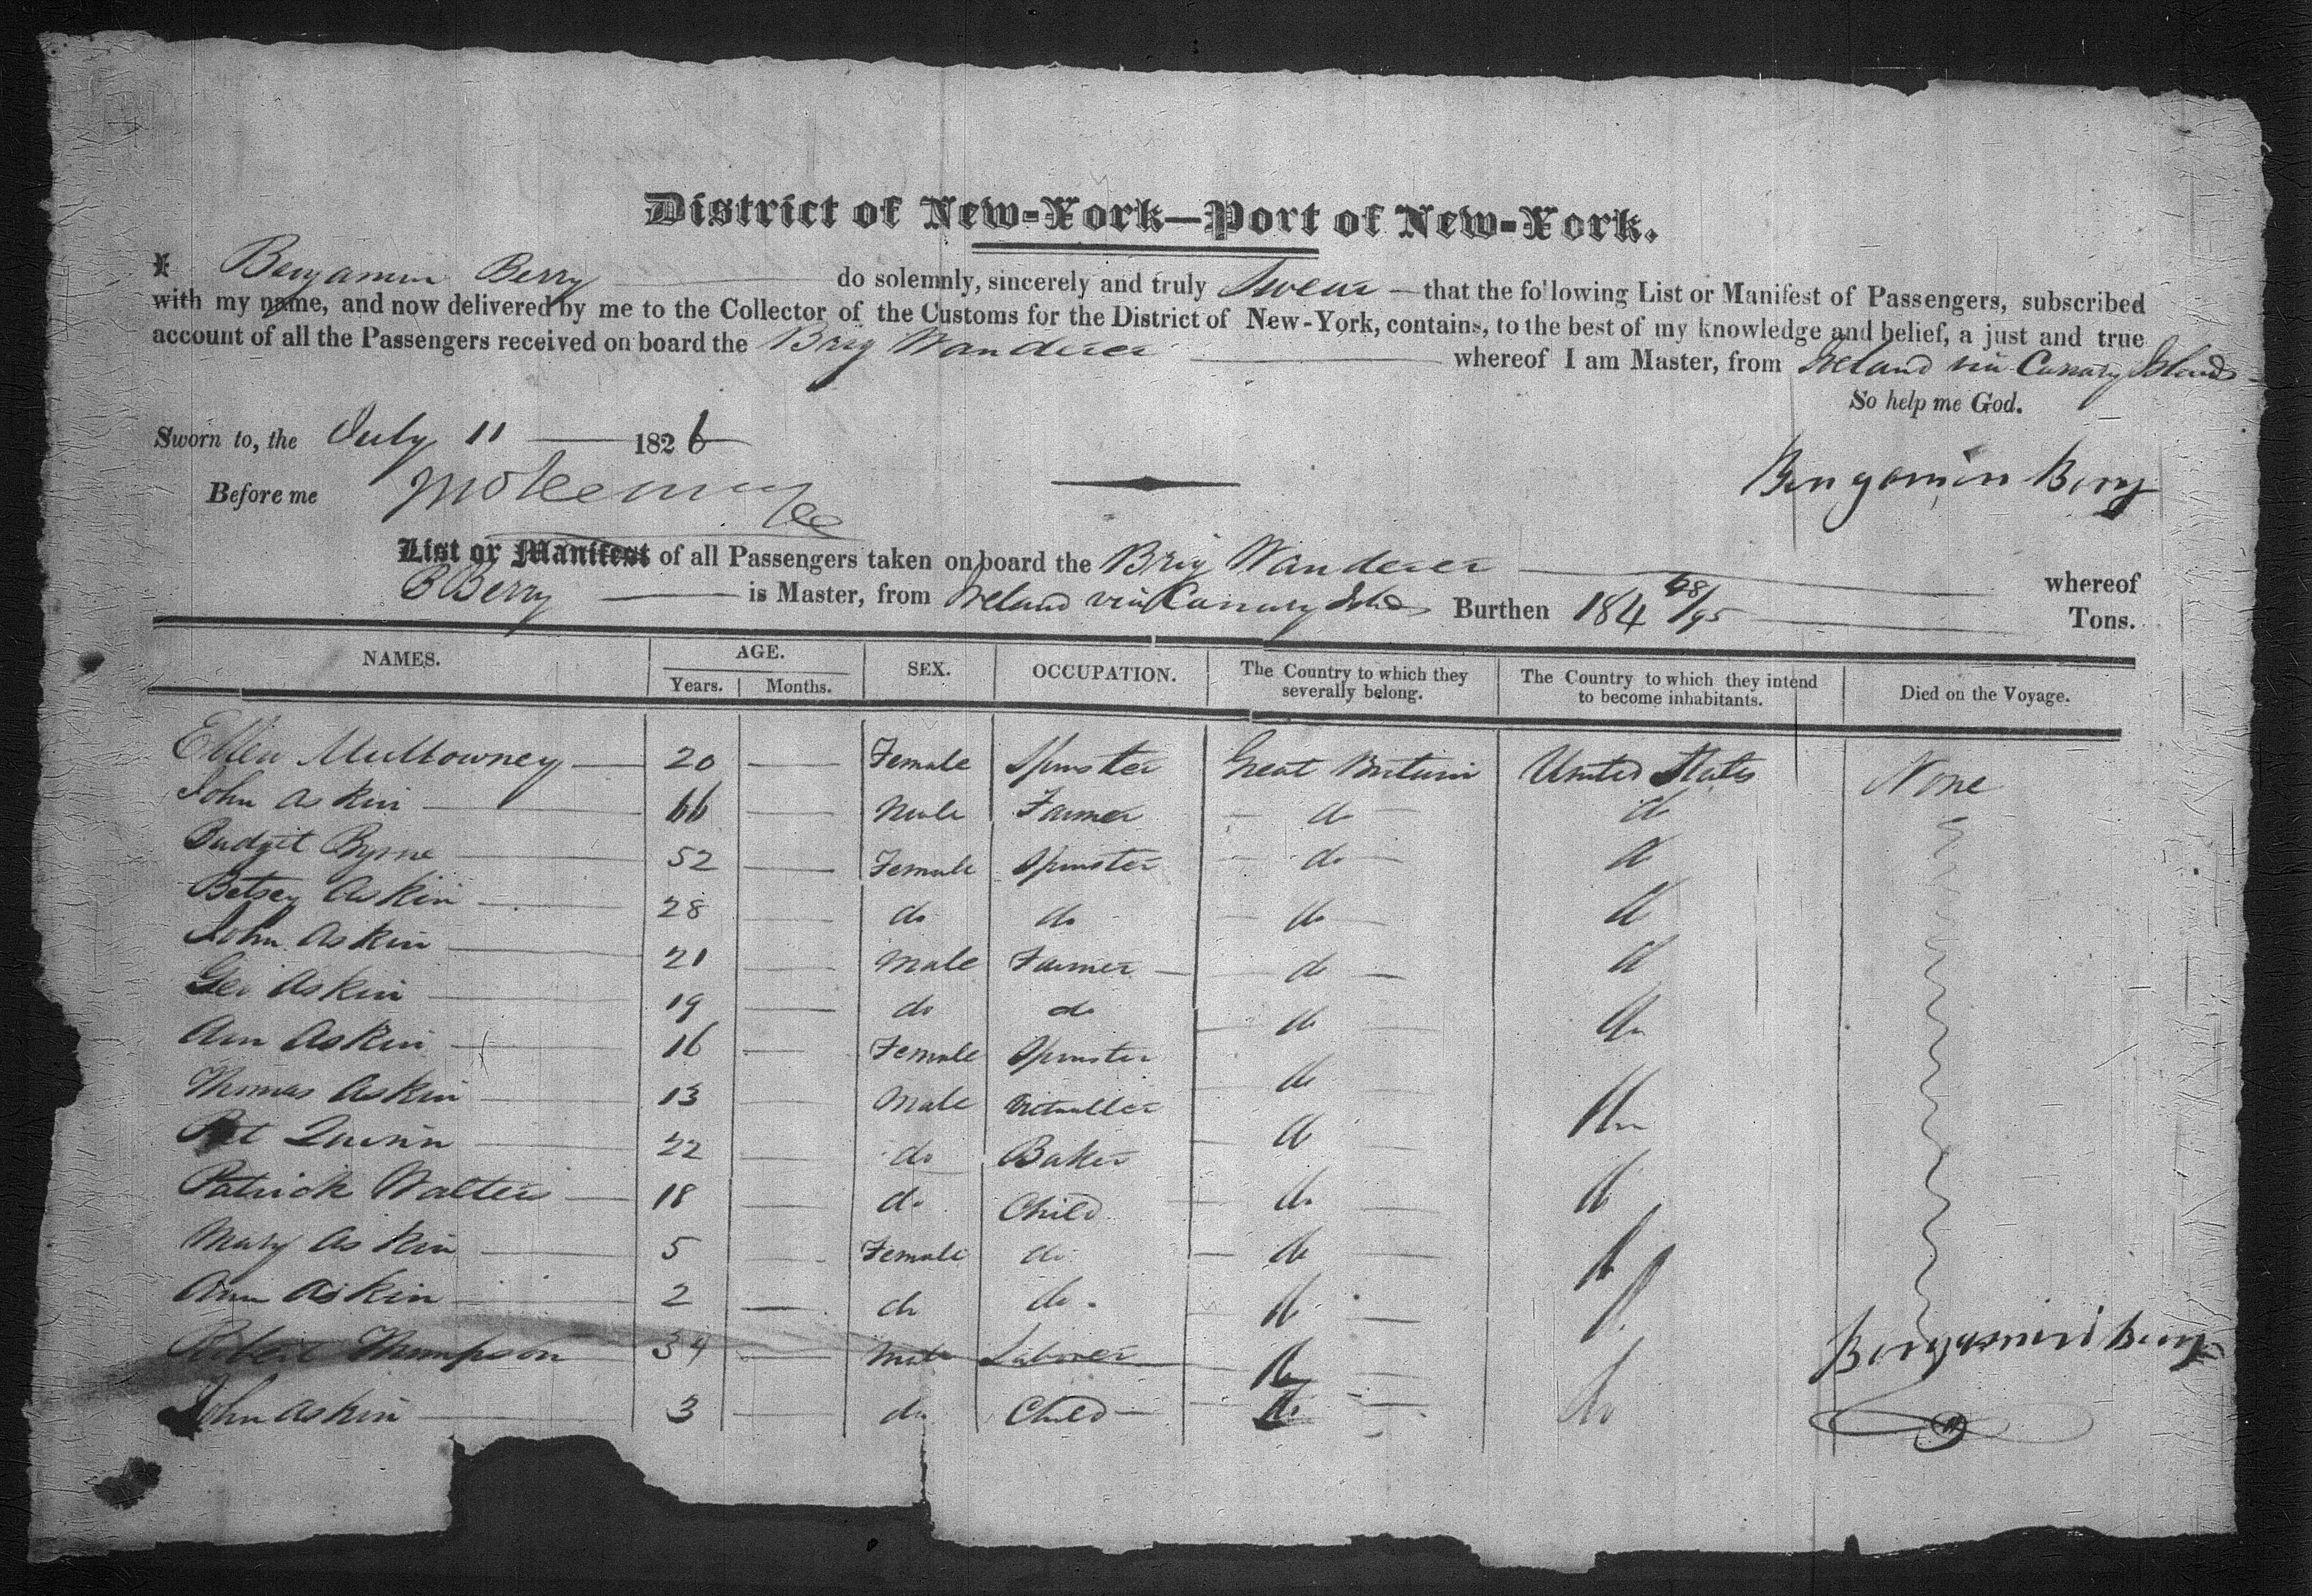 District of New-York—Port of New-York.
I Benjamin Berry do solemnly, sincerely and truly Swear — that the following List or Manifest of Passengers, subscribed
with my name, and now delivered by me to the Collector of the Customs for the District of New-York, contains, to the best of my knowledge and belief, a just and true
account of all the Passengers received on board the Brig Wanderer whereof I am Master, from Ireland via Canary Islands
So help me God.
Sworn to, the July 11 1826
Before me
Benjamin Berry
List or Manifest of all Passengers taken on board the Brig Wanderer whereof
B Berry is Master, from Ireland via Canary Isds Burthen 184 68/95 Tons.
NAMES. AGE. Years. Months. SEX. OCCUPATION. The Country to which they severally belong. The Country to which they intend to become inhabitants. Died on the Voyage.
Ellen Mullowney 20 Female Spinster Great Britain United States None
John Askin 66 Male Farmer do do
Bridget Byrne 52 Female Spinster do do
Betsey Askin 28 do do do do
John Askin 21 Male Farmer do do
Geo Askin 19 do do do do
Ann Askin 16 Female Spinster do do
Thomas Askin 13 Male Victualler do do
Pat Quinn 22 do Baker do do
Patrick Walters 18 do Child do do
Mary Askin 5 Female do do do
Ann Askin 2 do do do do
Robert Thompson 34 Male Laborer do
John Askin 3 do Child do do
Benjamin Berry